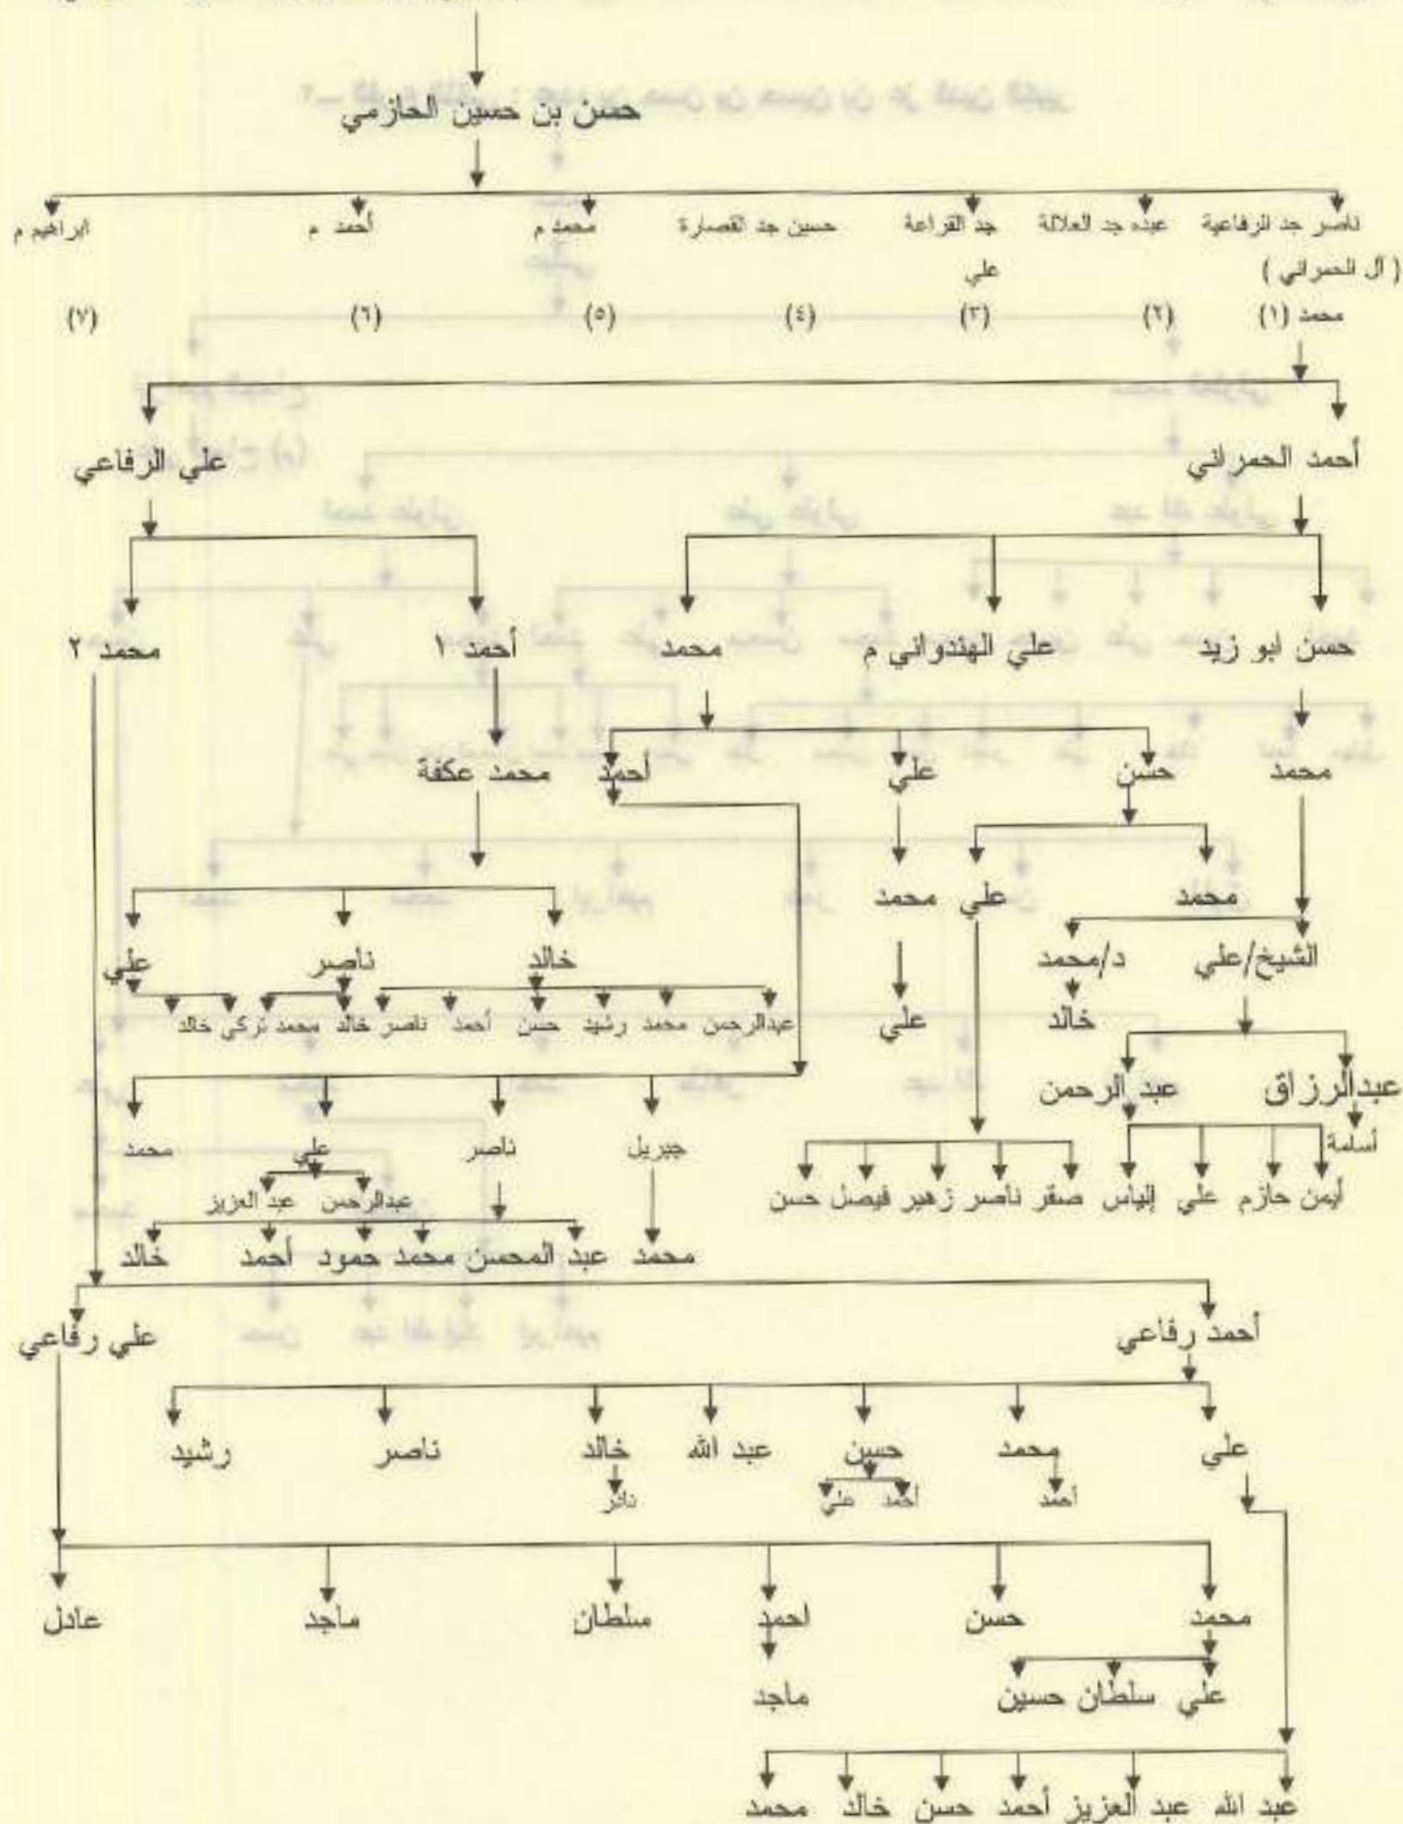 حسن بن حسين الحازمي
ناصر جد الرفاعية عبده جد العلالة جد القراعة حسين جد القصارة محمد م أحمد م ابراهيم م
( آل الحمراني ) علي
محمد (١) (٢) (٣) (٤) (٥) (٦) (٧)
أحمد الحمراني علي الرفاعي
حسن ابو زيد علي الهندواني م محمد أحمد ١ محمد ٢
محمد حسن علي أحمد محمد عكفة
محمد علي محمد
الشيخ/علي د/محمد خالد ناصر علي
خالد علي عبدالرحمن محمد رشيد حسن أحمد ناصر خالد محمد تركي خالد
عبدالرزاق عبد الرحمن
أسامة جبريل ناصر علي محمد
أيمن حازم علي إلياس صقر ناصر زهير فيصل حسن عبدالرحمن عبد العزيز
محمد عبد المحسن محمد حمود أحمد خالد
أحمد رفاعي علي رفاعي
علي محمد حسين عبد الله خالد ناصر رشيد
أحمد أحمد علي
محمد حسن احمد سلطان ماجد عادل
علي سلطان حسين ماجد
عبد الله عبد العزيز أحمد حسن خالد محمد